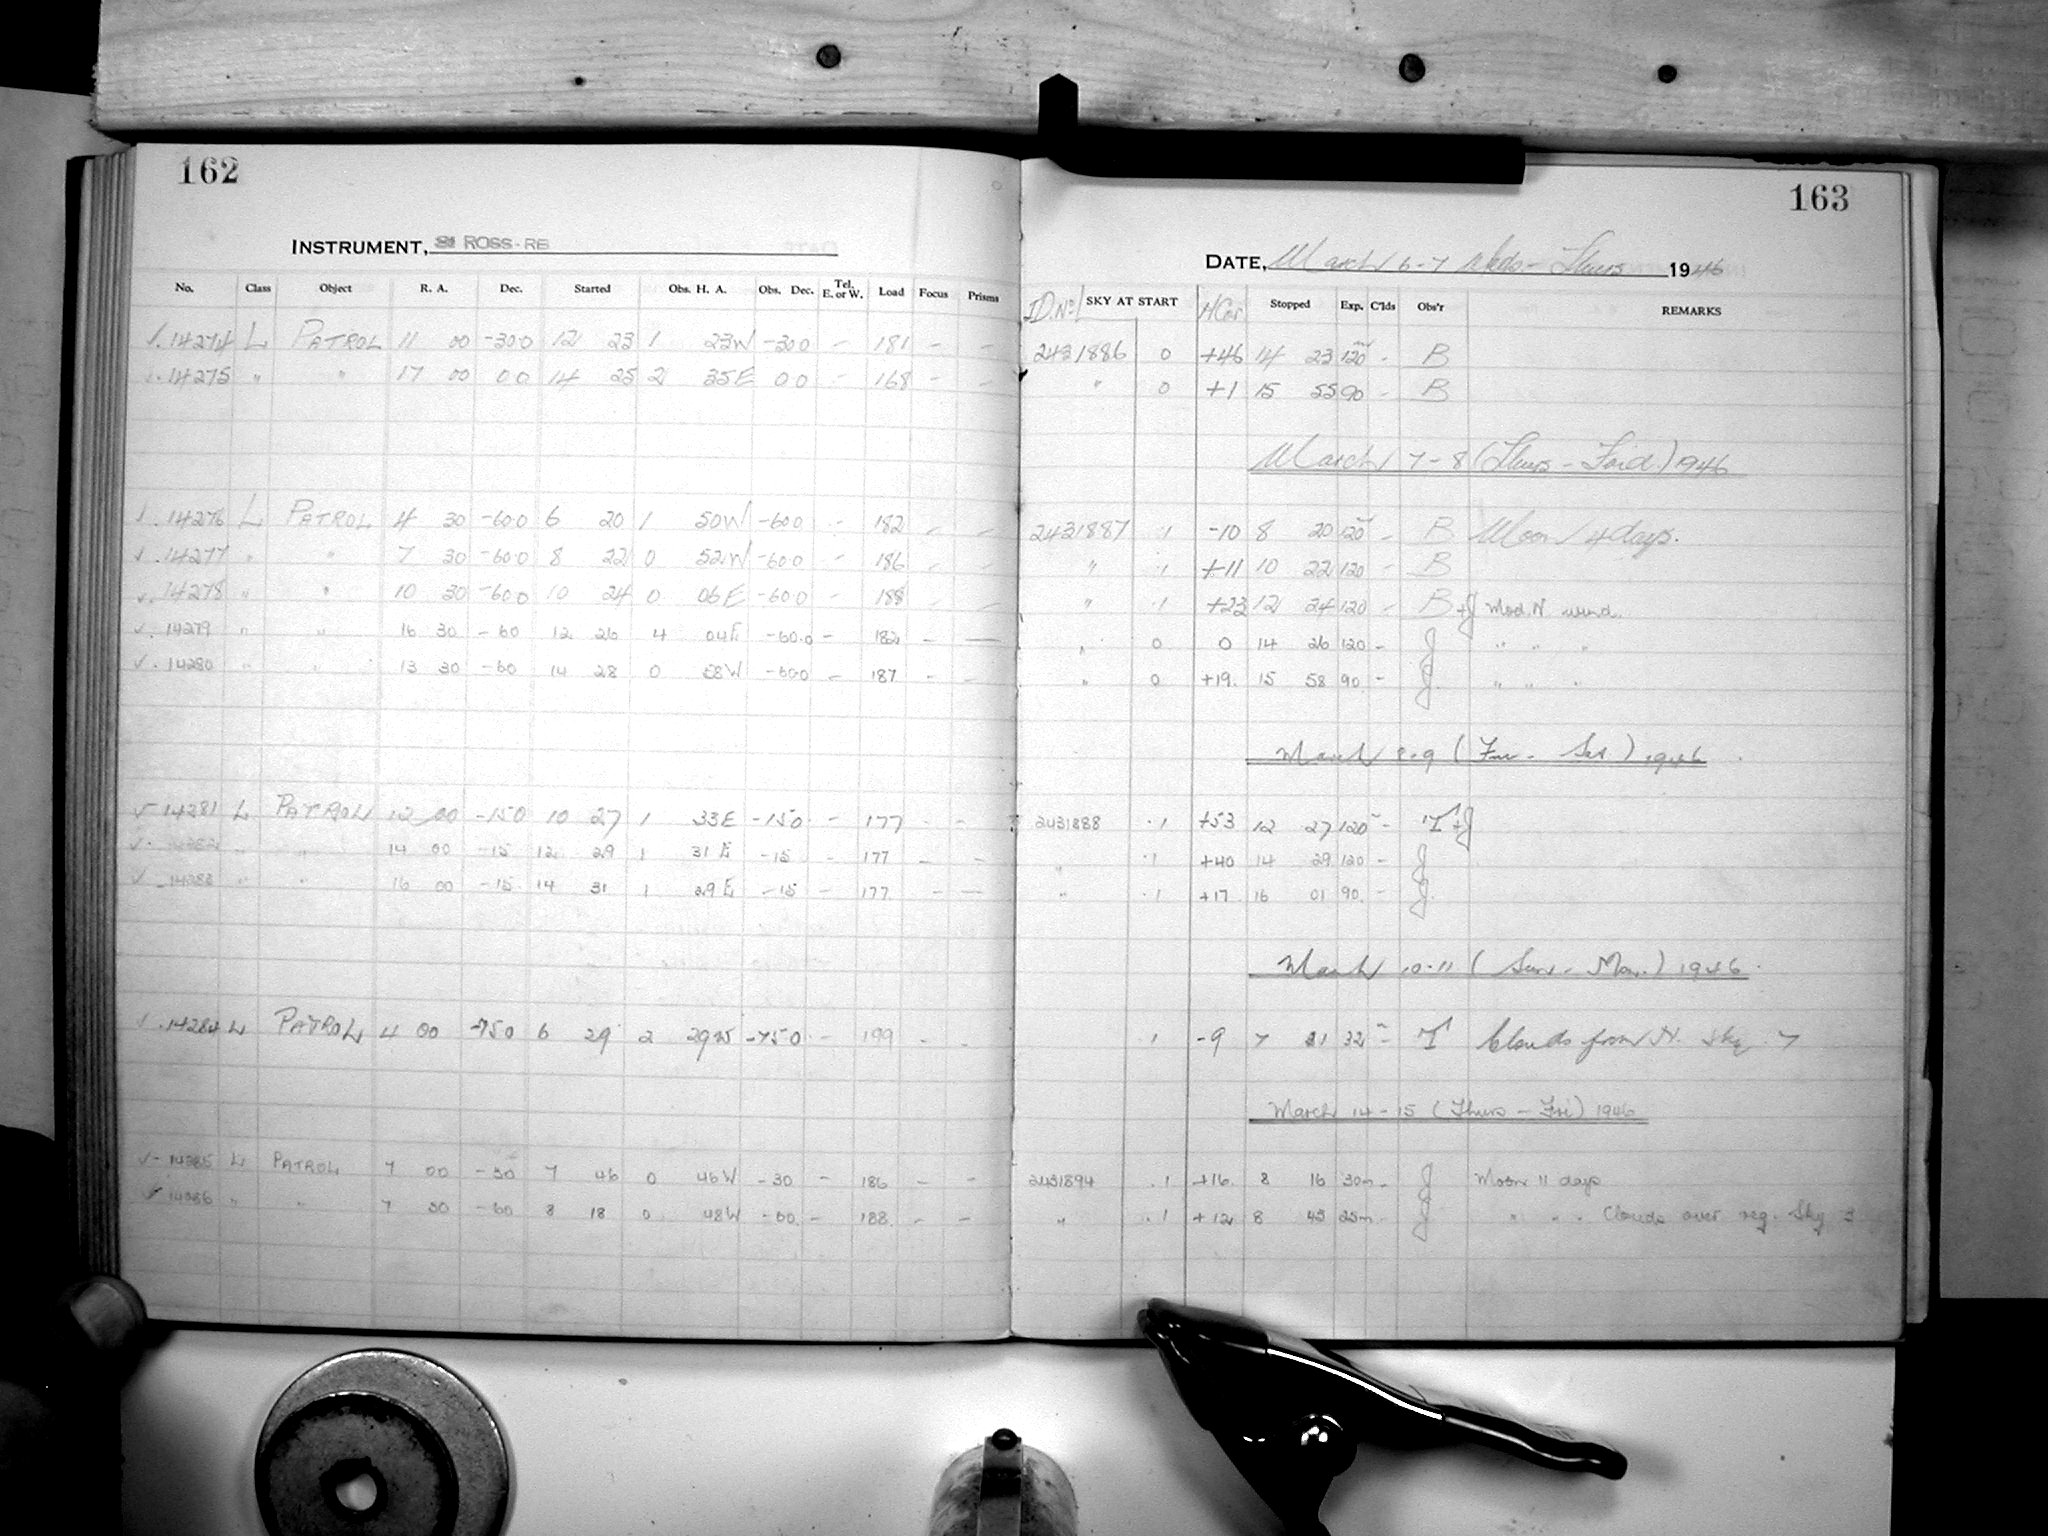 162
INSTRUMENT, ROSS-RB
No. Class Object R. A. Dec. Started Obs. H. A. Obs. Dec. Tel. E. or W. Load Focus Prisms
√.14274 L PATROL 11 00 -300 12 23 1 23W -300 - 181 - -
14275 " " 17 00 00 14 25 2 35E 00 - 168 - -
√.14276 L PATROL 4 30 -600 6 20 1 50W -600 - 182 - -
√.14277 " " 7 30 -600 8 22 0 52W -600 - 186 - -
√.14278 " " 10 30 -600 10 24 0 06E -600 - 188 - -
√.14279 " " 16 30 -60 12 26 4 04E -60.0 - 182 - -
√.14280 " " 13 30 -60 14 28 0 58W -600 - 187 - -
√ 14281 L PATROL 12 00 -150 10 27 1 33E -150 - 177 - -
√ 14282 " " 14 00 -15 12 29 1 31E -15 - 177 - -
√ 14283 " " 16 00 -15 14 31 1 29E -15 - 177 - -
√.14284 L PATROL 4 00 -750 6 29 2 29W -750 - 199 - -
√ 14285 L PATROL 7 00 -30 7 46 0 46W -30 - 186 - -
√ 14286 " " 7 30 -60 8 18 0 48W -60 - 188 - -
163
DATE, March 6-7 Weds-Thurs 1946
J.D. No. SKY AT START HCor Stopped Exp. C'lds Obs'r REMARKS
2431886 0 +46 14 23 120m - B
" 0 +1 15 55 90 - B
March 7-8 (Thurs-Frid.) 1946
2431887 .1 -10 8 20 120m - B Moon 4 days.
" .1 +11 10 22 120 - B
" .1 +23 12 24 120 - B+J Mod. N. wind.
" 0 0 14 26 120 - J " " "
" 0 +19. 15 58 90 - J " " "
March 8-9 (Fri - Sat) 1946
2431888 .1 +53 12 27 120 - T+J
" .1 +40 14 29 120 - J
" .1 +17 16 01 90. - J.
March 10-11 (Sun - Mon.) 1946
1 -9 7 32 - T Clouds from N. Sky 7
March 14-15 (Thurs - Fri) 1946
2431894 .1 +16. 8 16 30m - J Moon 11 days
" .1 +12 8 43 25m - J " " . Clouds over reg. Sky 3